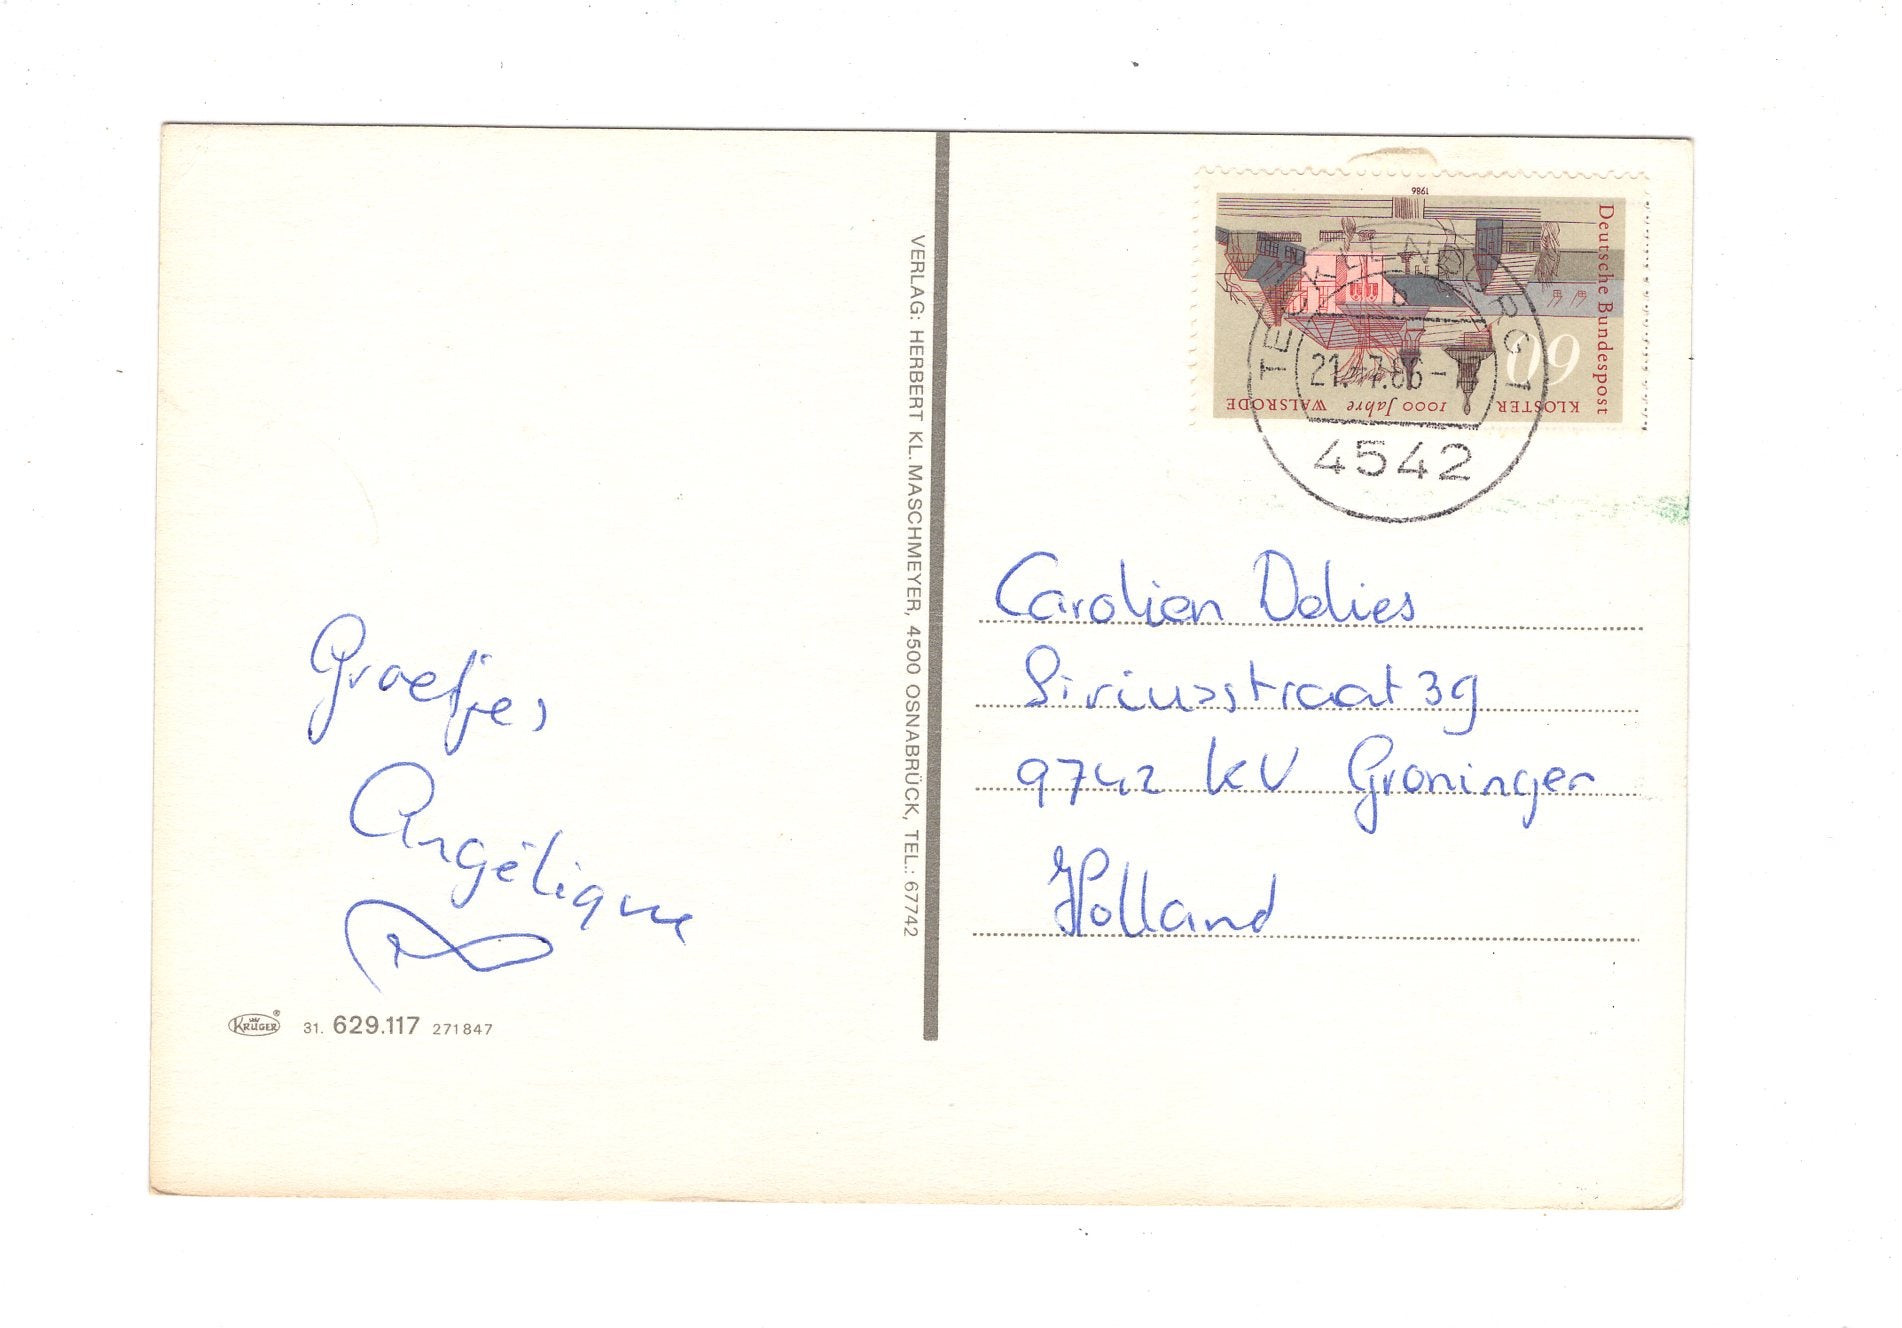 Groetjes
Angélique
KRÜGER
31. 629.117 271847
VERLAG: HERBERT KL. MASCHMEYER, 4500 OSNABRÜCK, TEL.: 67742
1986
Deutsche Bundespost
60
KLOSTER 1000 Jahre WALSRODE
TECKLENBURG 1
21.-7.86-
4542
Carolien Delies
Siriusstraat 39
9742 KV Groningen
Holland